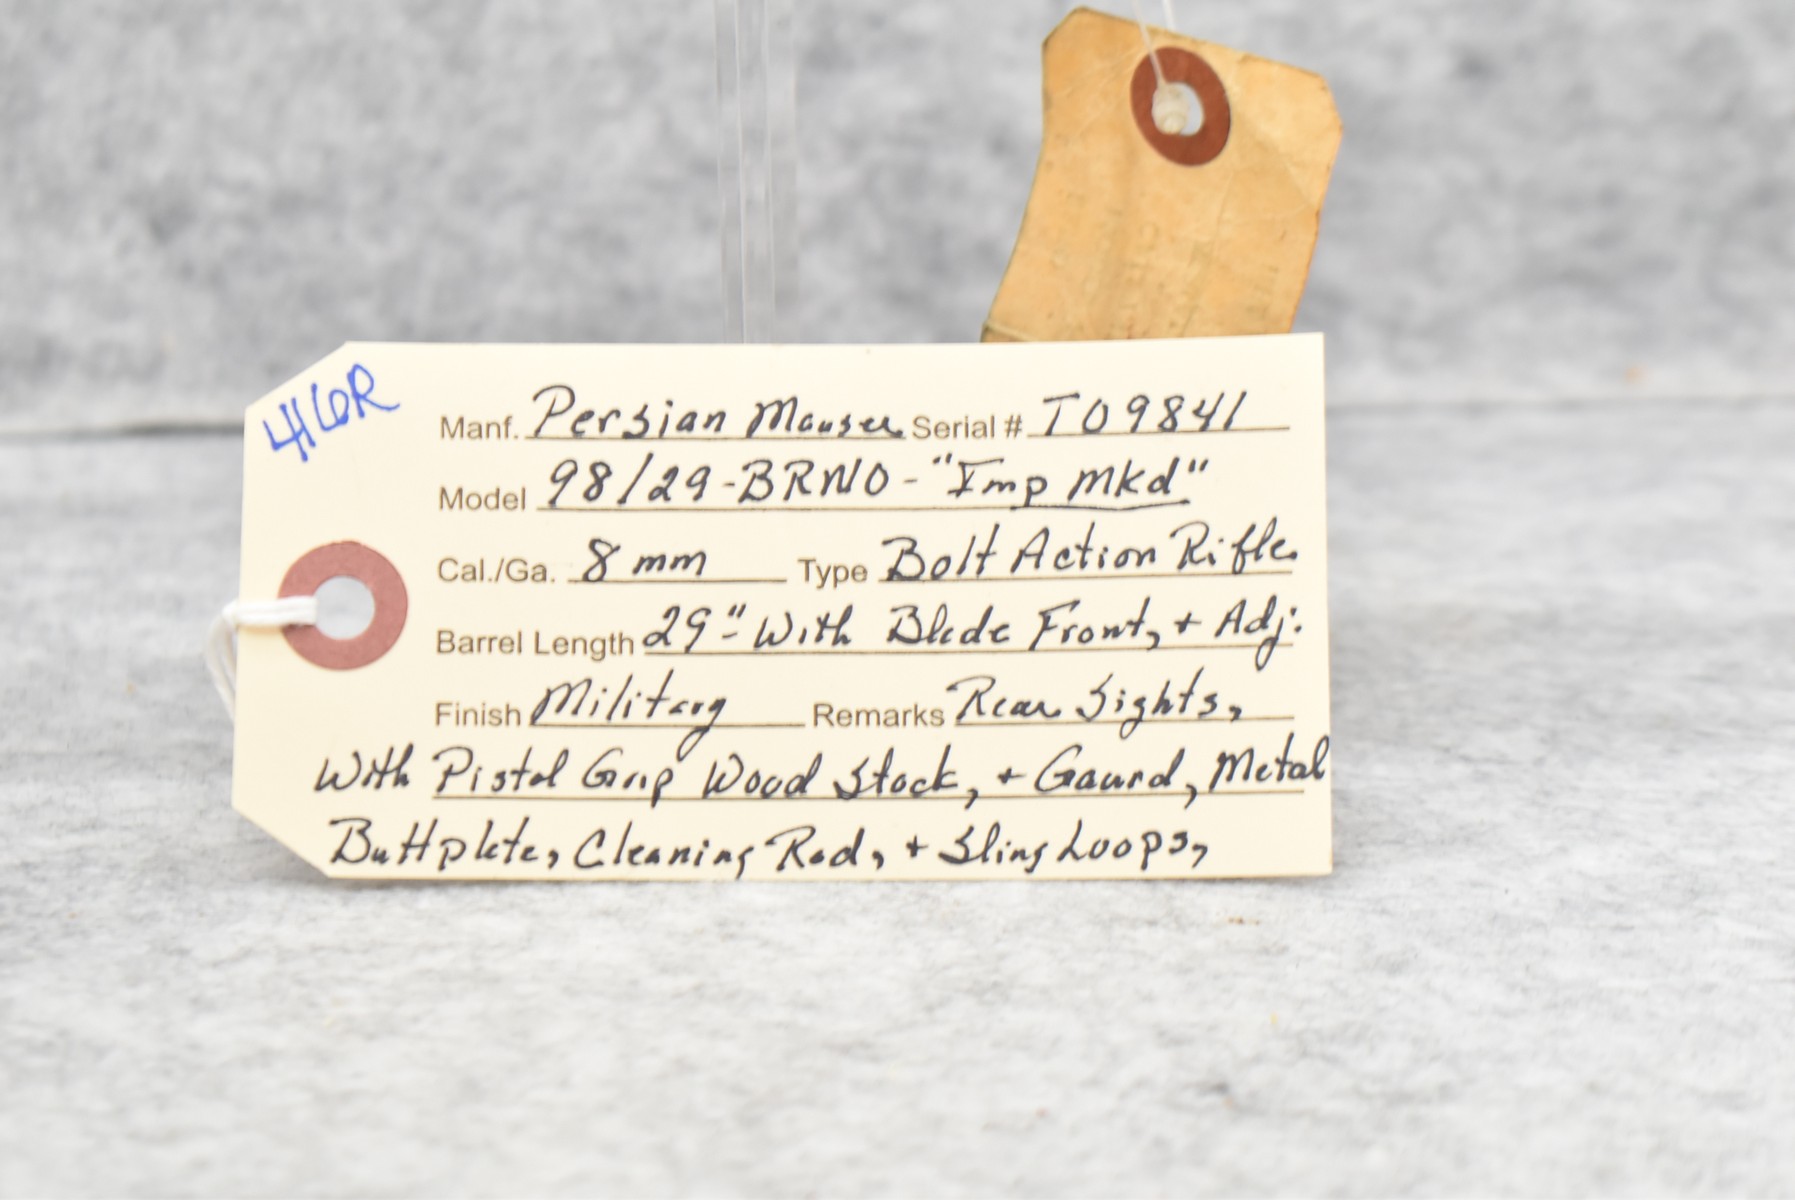 416R
Manf. Persian Mauser Serial # T09841
Model 98/29-BRNO-"Imp Mkd"
Cal./Ga. 8mm Type Bolt Action Rifle
Barrel Length 29"-With Blade Front, + Adj.
Finish Military Remarks Rear Sights,
With Pistol Grip Wood Stock, + Gaurd, Metal
Buttplate, Cleaning Rod, + Sling Loops,